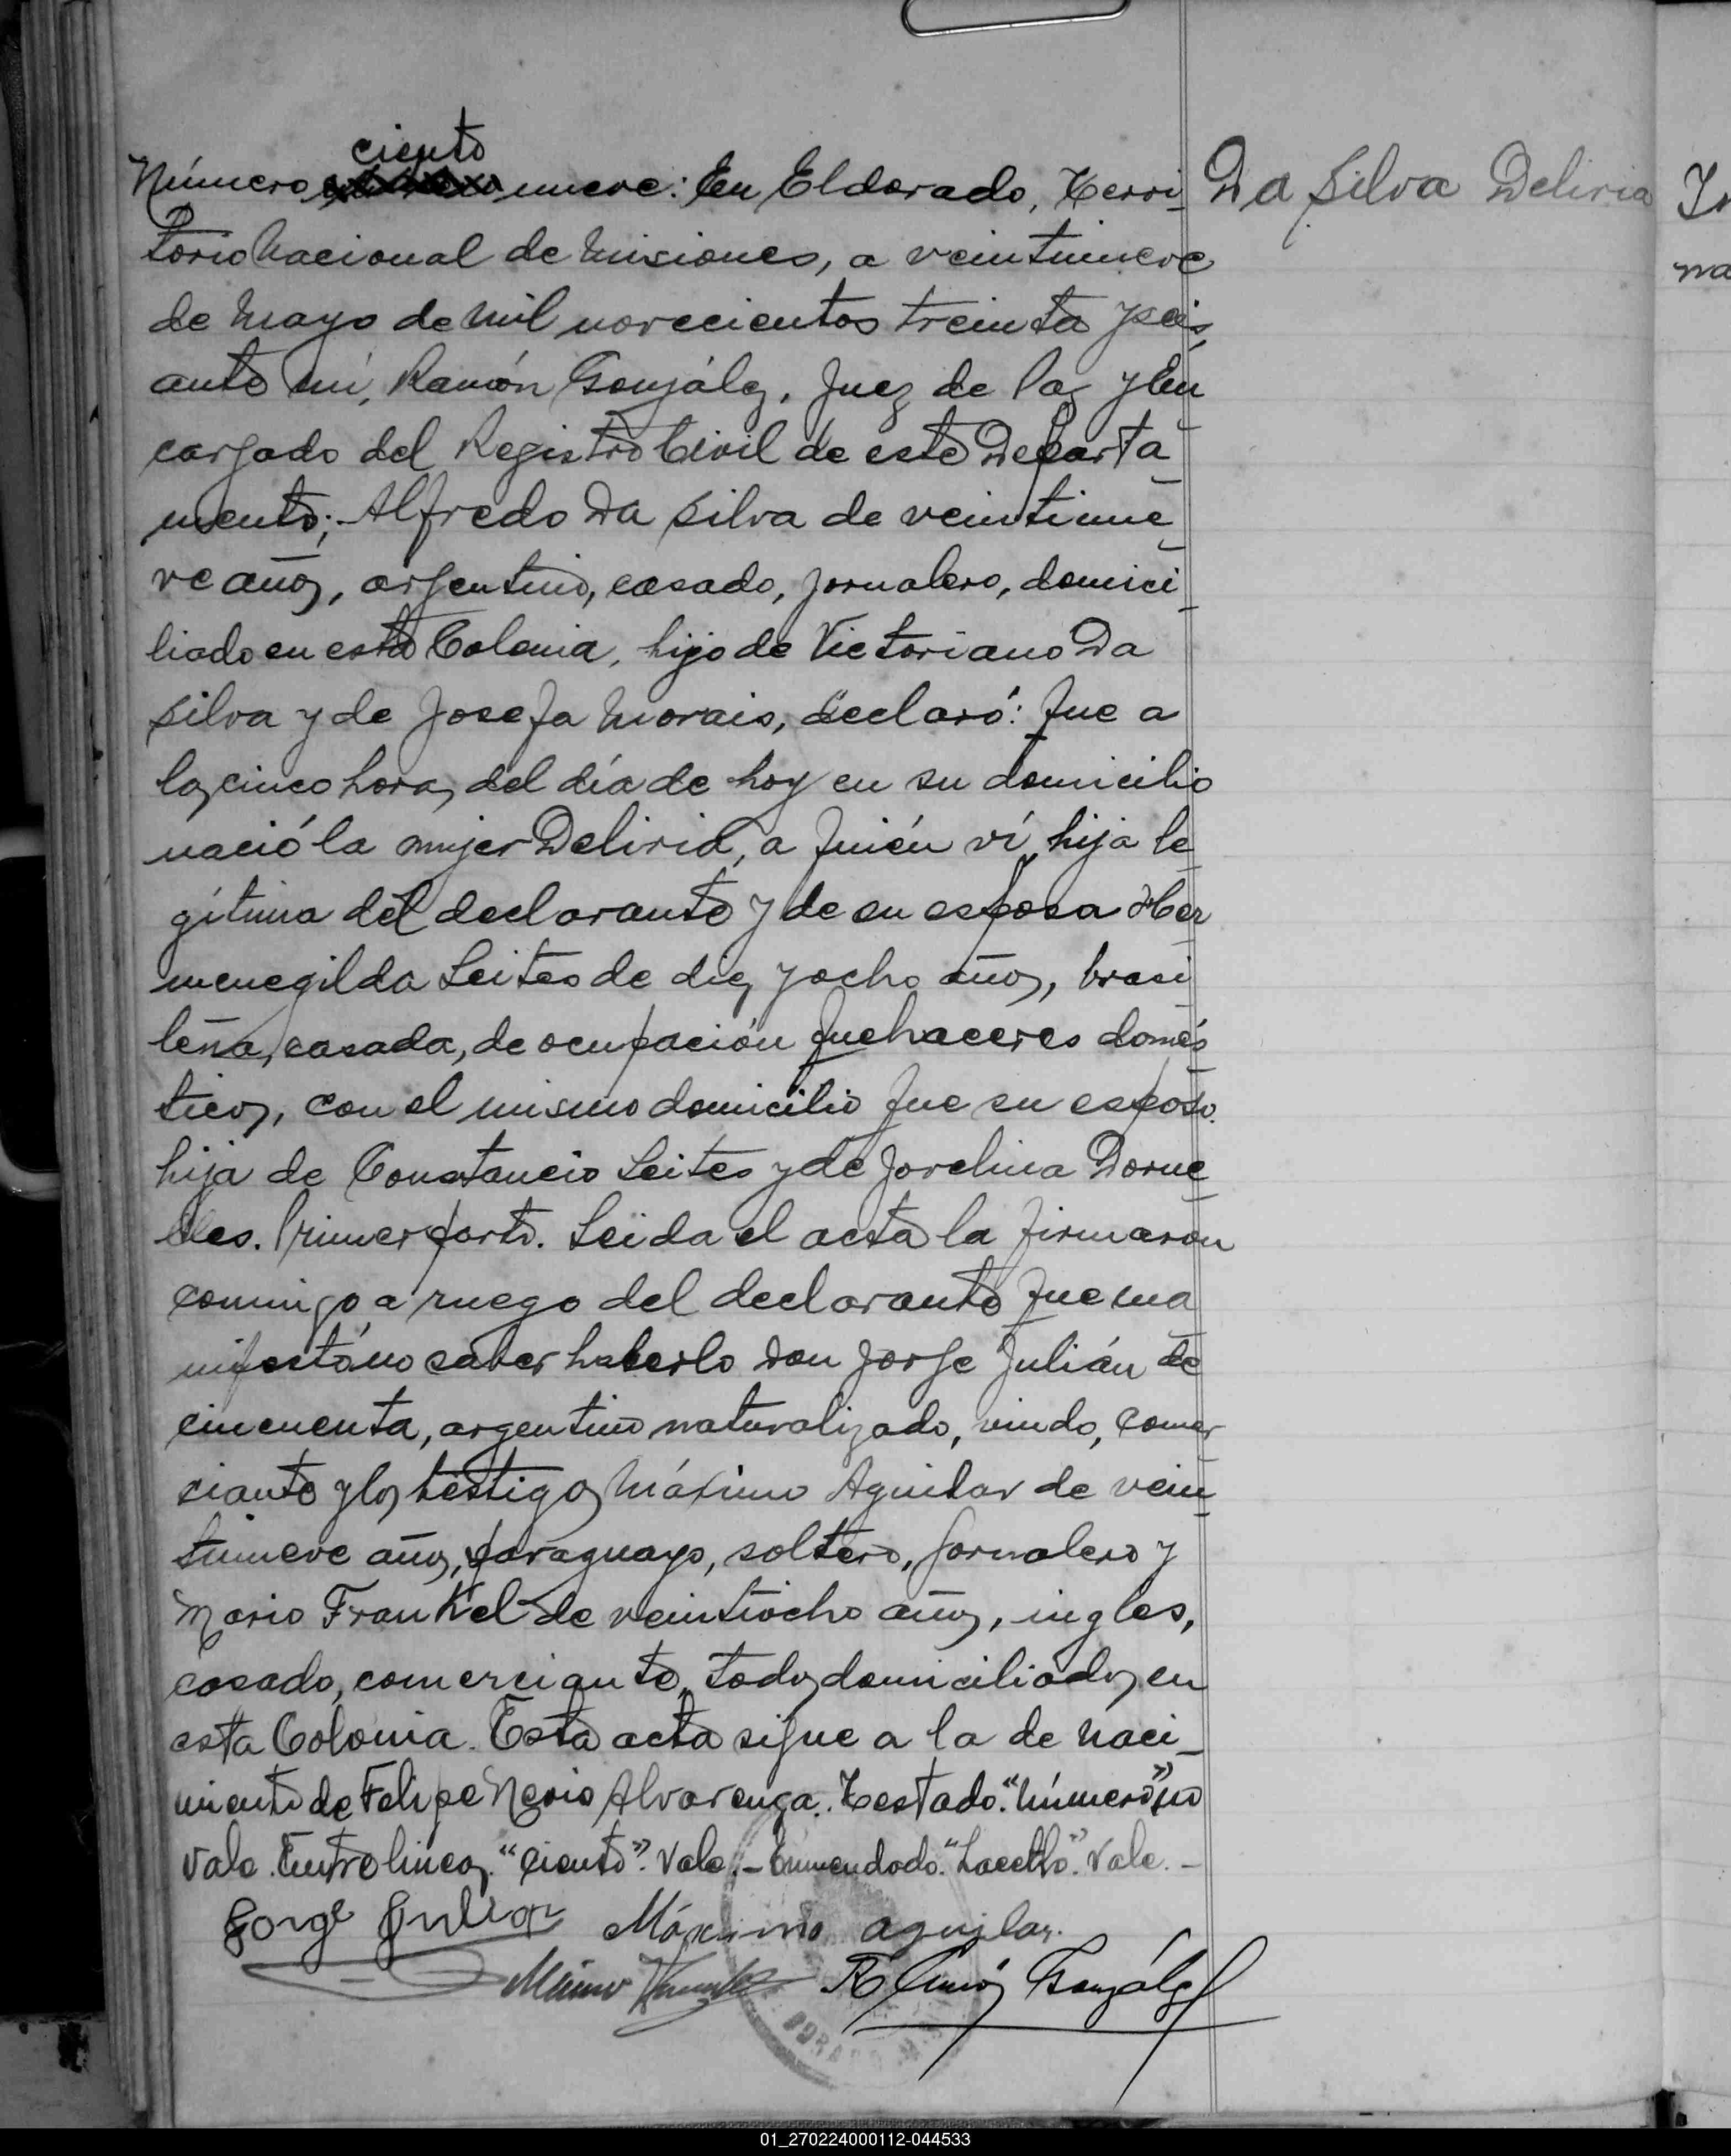 ciento
Número nueve: En Eldorado, Terri_
torio Nacional de Misiones, a veintinueve
de Mayo de Mil novecientos treinta y seis,
ante mí, Ramón González, Juez de Paz y En_
cargado del Registro Civil de este Departa_
mento; Alfredo Da Silva de veintinue_
ve años, argentino, casado, jornalero, domici_
liado en esta Colonia, hijo de Victoriano Da
Silva y de Josefa Morais, declaró: Que a
las cinco horas del día de hoy en su domicilio
nació la mujer Deliria, a quién ví, hija le_
gítima del declarante y de su esposa Her_
menegilda Leites de diez y ocho años, brasi_
leña, casada, de ocupación quehaceres domés_
ticos, con el mismo domicilio que su esposo.
hija de Constancio Leites y de Jovelina Dorne_
lles. Primer parto. Leida el acta la firmaron
conmigo, a ruego del declarante que ma_
nifestó no saber hacerlo don Jorge Julián de
cincuenta, argentino naturalizado, viudo, comer_
ciante y los testigos Máximo Aguilar de vein_
tinueve años, paraguayo, soltero, jornalero y
Mario Frankel de veintiocho años, ingles,
casado, comerciante, todos domiciliados en
esta Colonia. Esta acta sigue a la de Naci_
miento de Felipe Nerio Alvarenga. Testado. "Número" no
vale. Entrelineas. "ciento". Vale. - Enmendado. Vale. -
Jorge Julian Máximo aguilar.
Ramón González
Da Silva Deliria